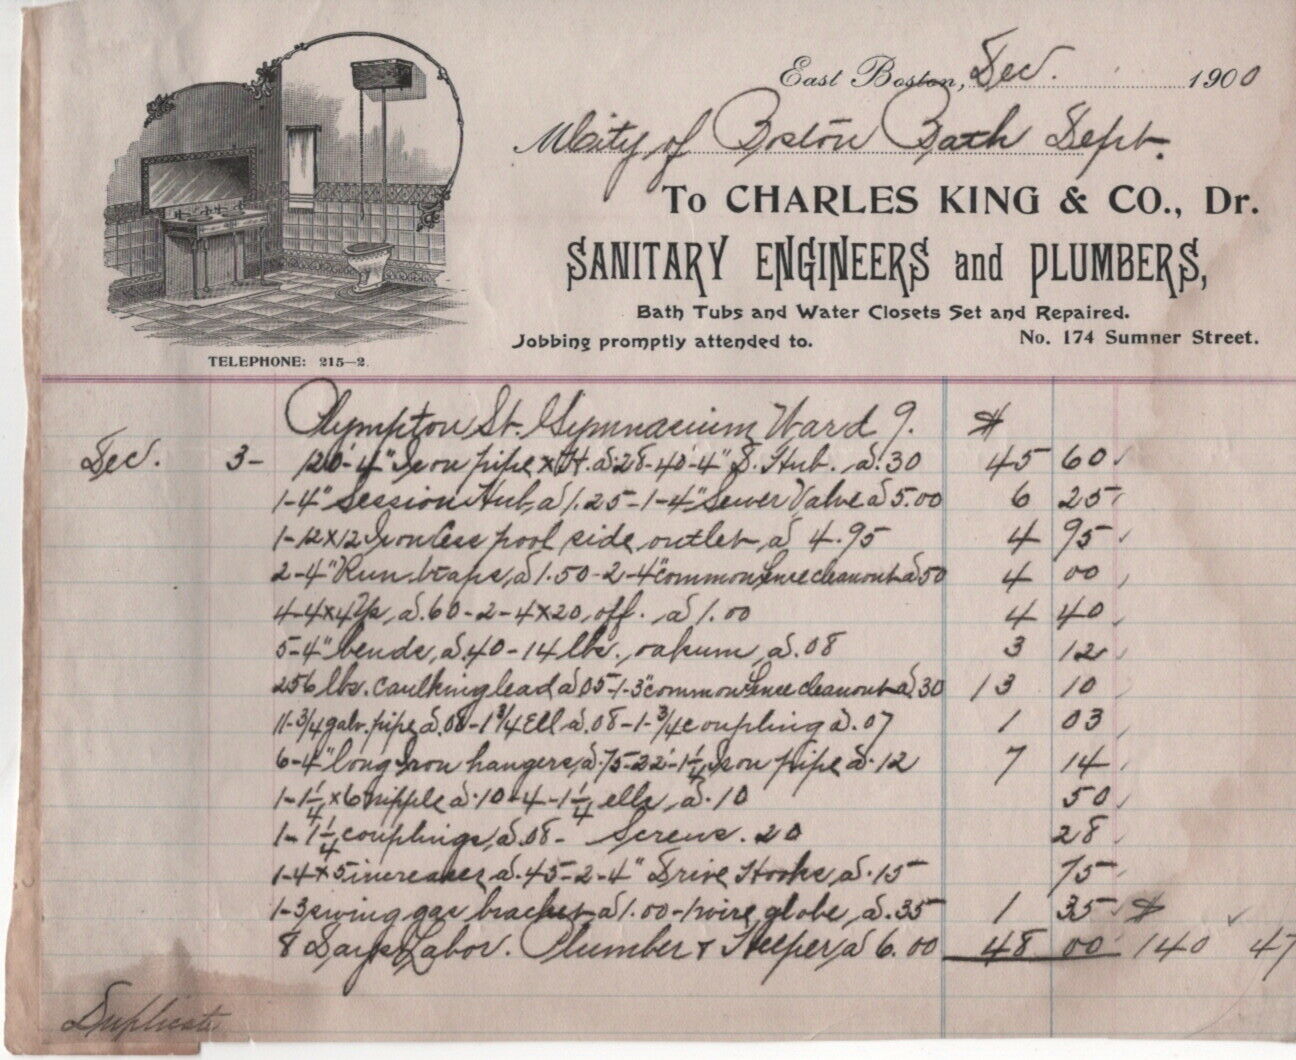 East Boston, Dec. 1900
M City of Boston Bath Dept.
To CHARLES KING & CO., Dr.
SANITARY ENGINEERS and PLUMBERS,
Bath Tubs and Water Closets Set and Repaired.
Jobbing promptly attended to. No. 174 Sumner Street.
TELEPHONE: 215-2.
Plympton St. Gymnacium Ward 9. $
Dec. 3- 120'-4" Iron pipe x H. a .28-40'-4" S. Hub. a .30 45 60
1-4" Session Hub, a 1.25-1-4" Sewer Valve a 5.00 6 25
1-12x12 Iron Cess pool side outlet, a 4.95 4 95
2-4" Run. traps, a 1.50-2-4" common sence cleanout a 50 4 00
4-4x4 Ys, a .60-2-4x20, off. a 1.00 4 40
5-4" bends, a .40-14 lbs. oakum, a .08 3 12
256 lbs. caulking lead a 05-1-3" common sence cleanout a .30 13 10
11-3/4 galv. pipe a .08-1 3/4 Ell a .08-1-3/4 coupling a .07 1 03
6-4" long Iron hangers, a .75-22'-1 1/4 Iron pipe a .12 7 14
1-1 1/4 x6 nipple a .10-4-1 1/4 ells, a .10 50
1-1 1/4 couplings, a .08- Screws. 20 28
1-4x5 increaser a .45-2-4" Drive Hooks, a .15 75
1-3 swing gas bracket a 1.00-1 wire globe, a .35 1 35 $
8 Days Labor. Plumber & Helper, a 6.00 48 00 140 47
Duplicate